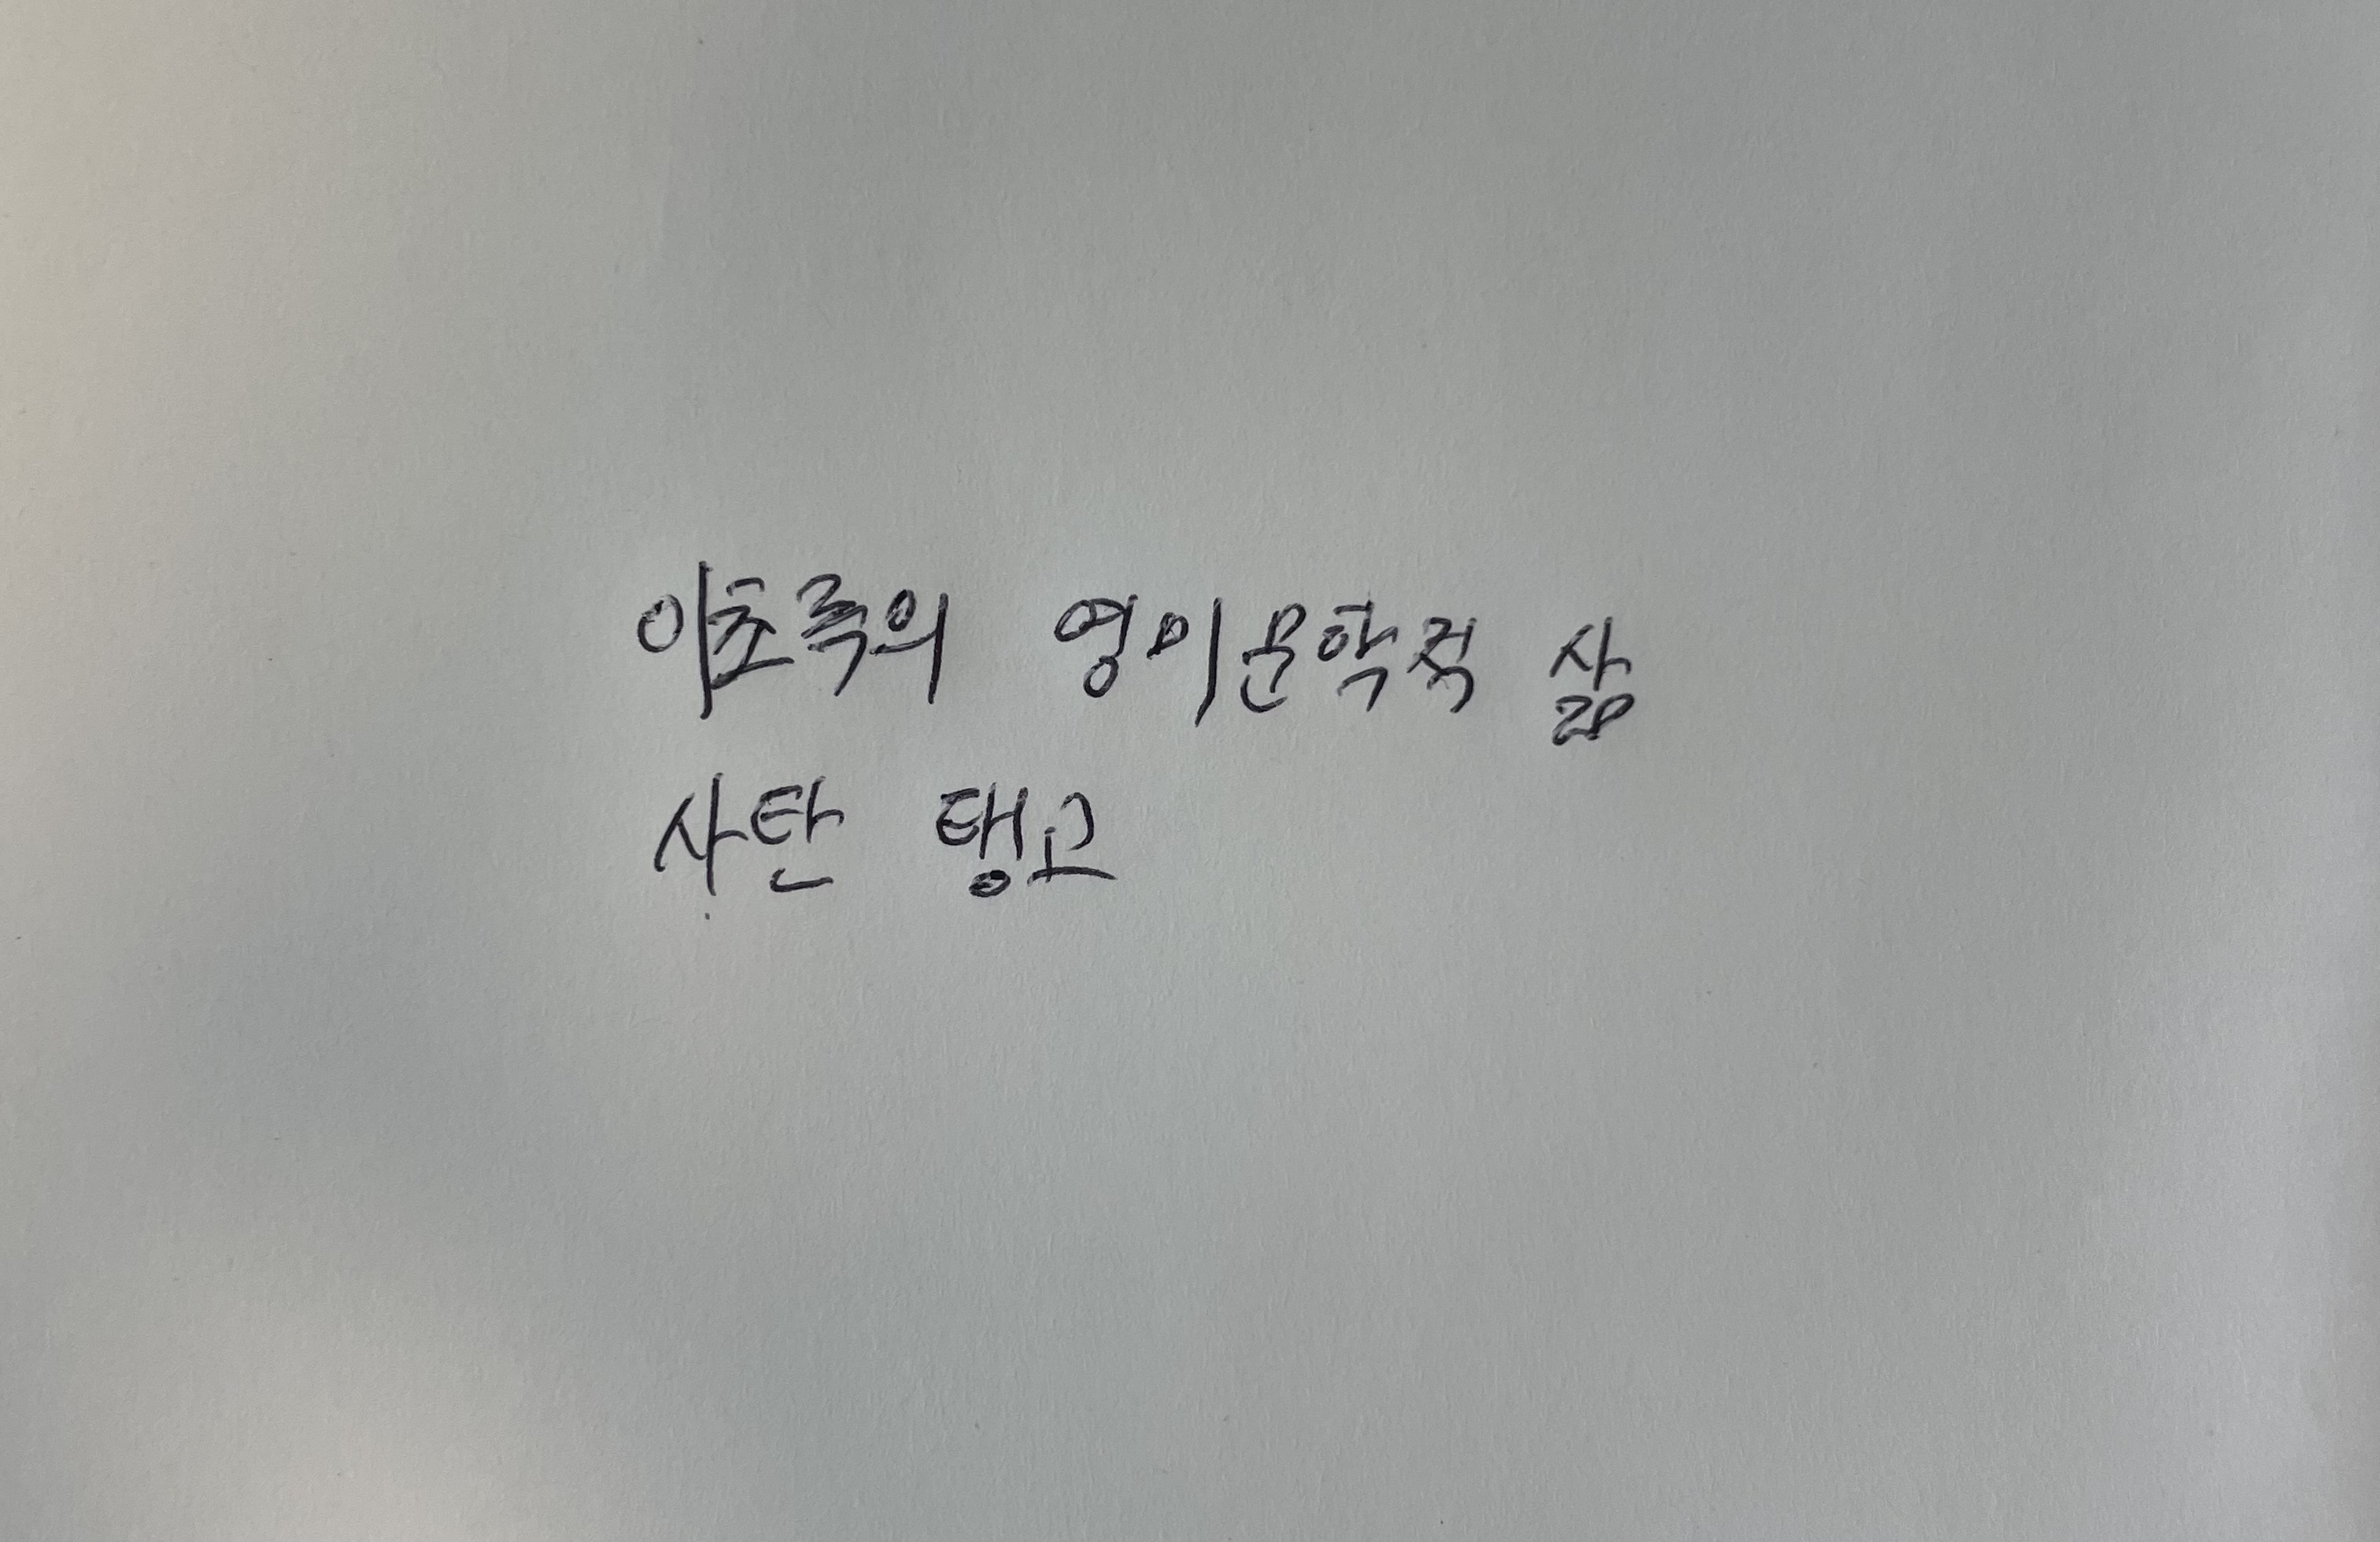 이초록의 영미문학적 삶
사탄 탱고